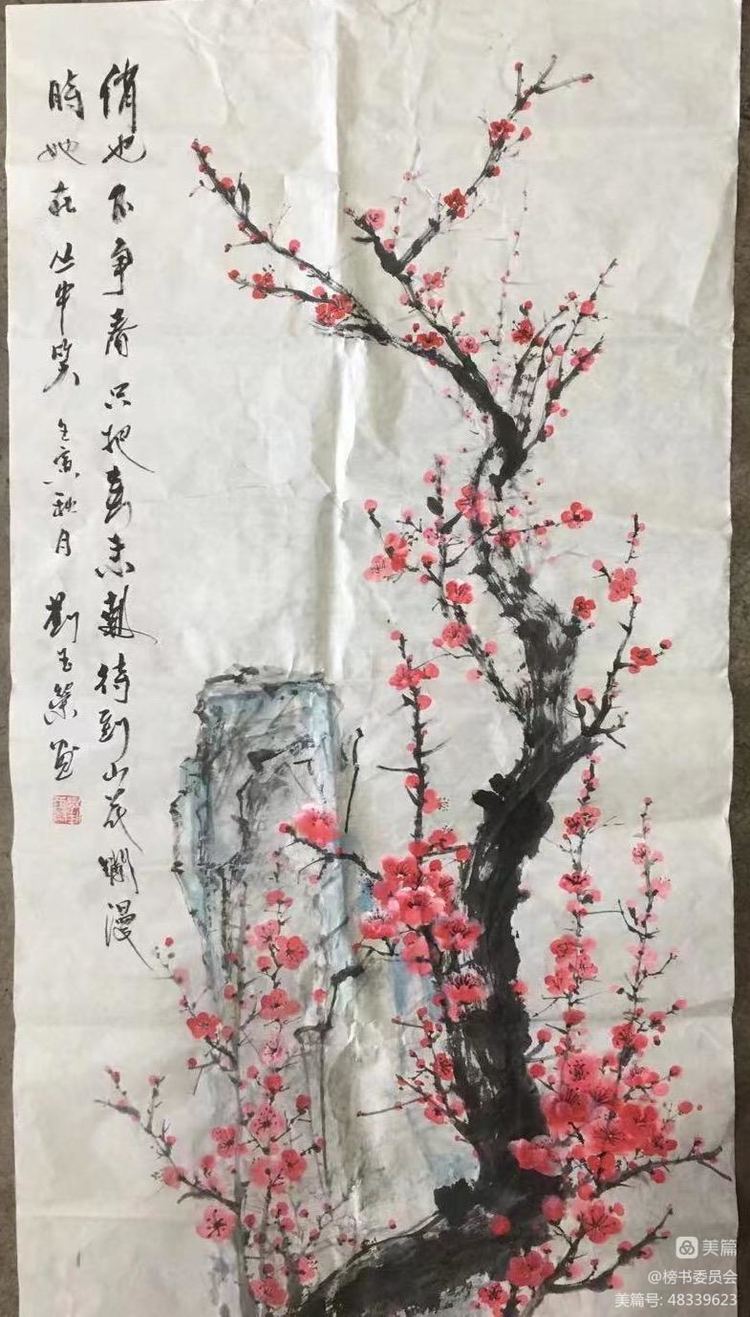 俏也不争春只把春来報待到山花爛漫
時她在丛中笑 壬寅秋月 劉玉榮画
美篇
@榜书委员会
美篇号: 48339623